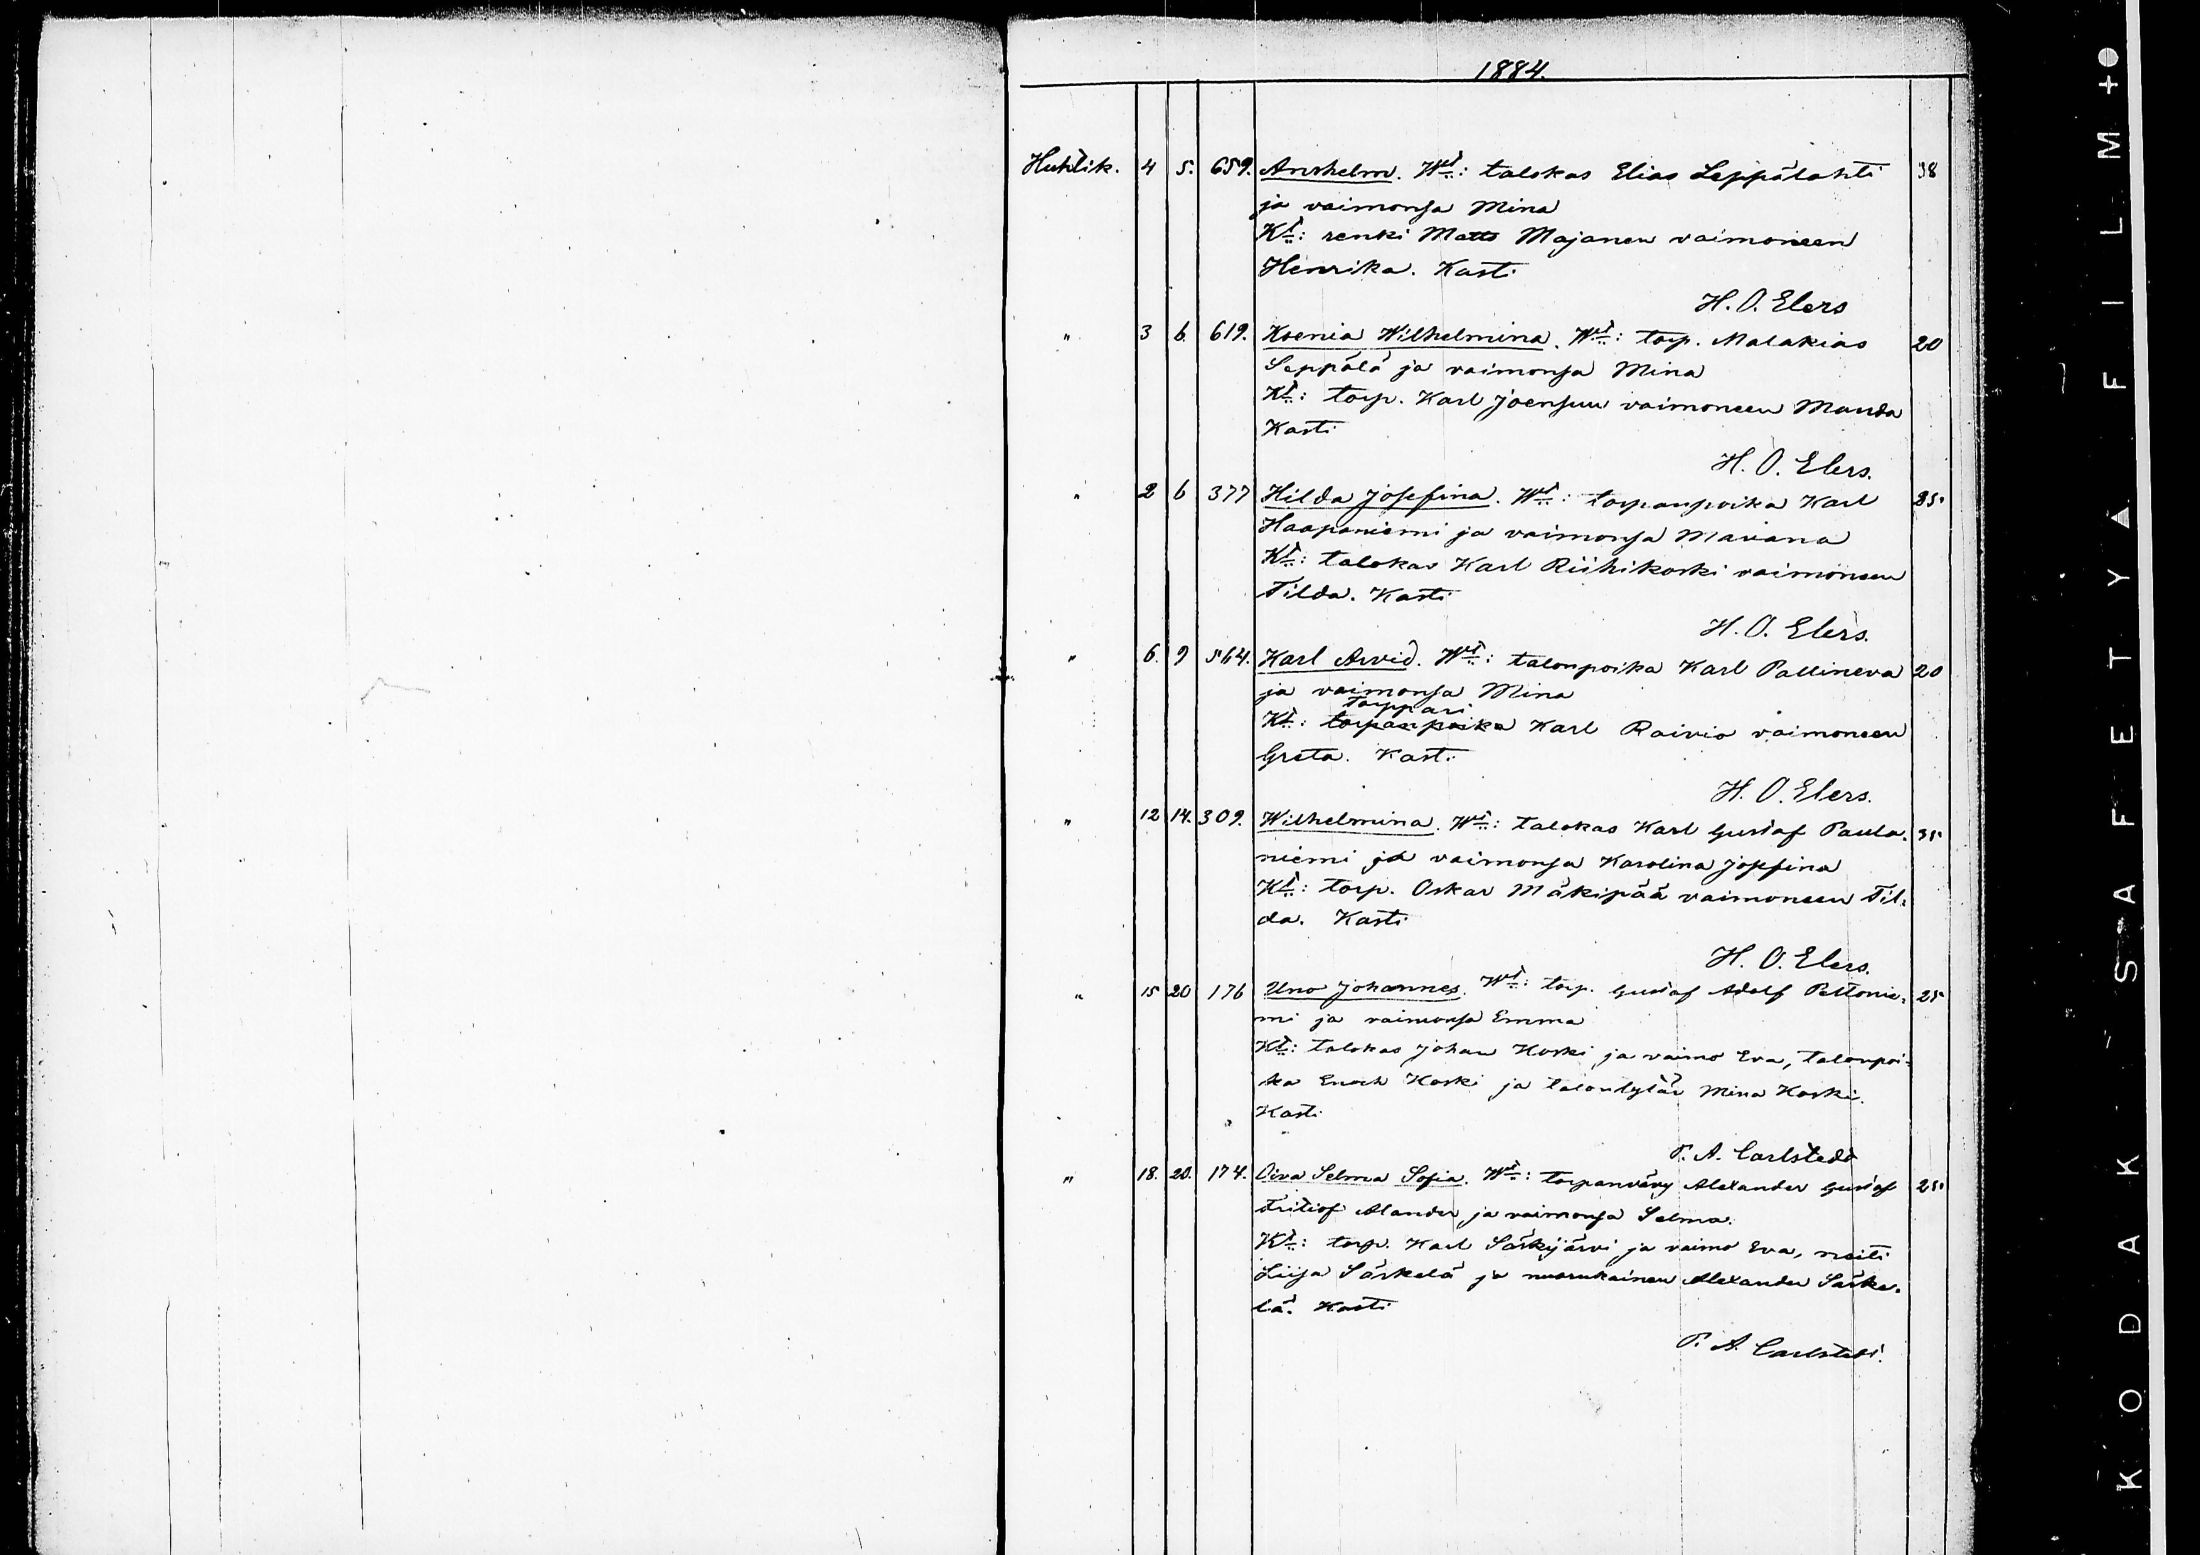 1884.
Huhtik. 4 5. 659. Anshelm. Wt: talokas Elias Leppälahti 38
ja vaimonsa Mina
Kt: renki Matts Majanen vaimoneen
Henrika. Kasti
H. O. Elers
" 3 6. 619. Ksenia Wilhelmina. Wt: torp. Malakias 20
Seppälä ja vaimonsa Mina
Kt: torp. Karl Joensuu vaimoneen Manda
Kasti
H. O. Elers.
" 2 6 377 Hilda Josefina. Wt: torpanpoika Karl 25
Haapaniemi ja vaimonsa Mariana
Kt: talokas Karl Riihikoski vaimoneen
Tilda. Kasti
H. O. Elers.
" 6. 9 564. Karl Arvid. Wt: talonpoika Karl Pallineva 20
ja vaimonsa Mina
torppari
Kt: torpanpoika Karl Raivio vaimoneen
Greta. Kasti
H. O. Elers.
" 12 14. 309. Wilhelmina. Wt: talokas Karl Gustaf Paula- 35
niemi ja vaimonsa Karolina Josefina
Kt: torp. Oskar Mäkipää vaimoneen Til-
da. Kasti
H. O. Elers.
" 15 20 176 Uno Johannes. Wt: torp. Gustaf Adolf Peltonie- 25
mi ja vaimonsa Emma
Kt: talokas Johan Koski ja vaimo Eva, talonpoi-
ka Enoch Koski ja talontytär Mina Koski.
Kasti
" T. A. Carlstedt
" 18. 20. 174. Oiva Selma Sofia. Wt: torpanvävy Alexander Gustaf 25
Fritiof Alander ja vaimonsa Selma.
Kt: torp. Karl Särkijärvi ja vaimo Eva, neiti
Liisa Särkelä ja nuorukainen Alexander Särke-
lä. Kasti
T. A. Carlstedt.
KODAK · SAFETY ▲ FILM +●